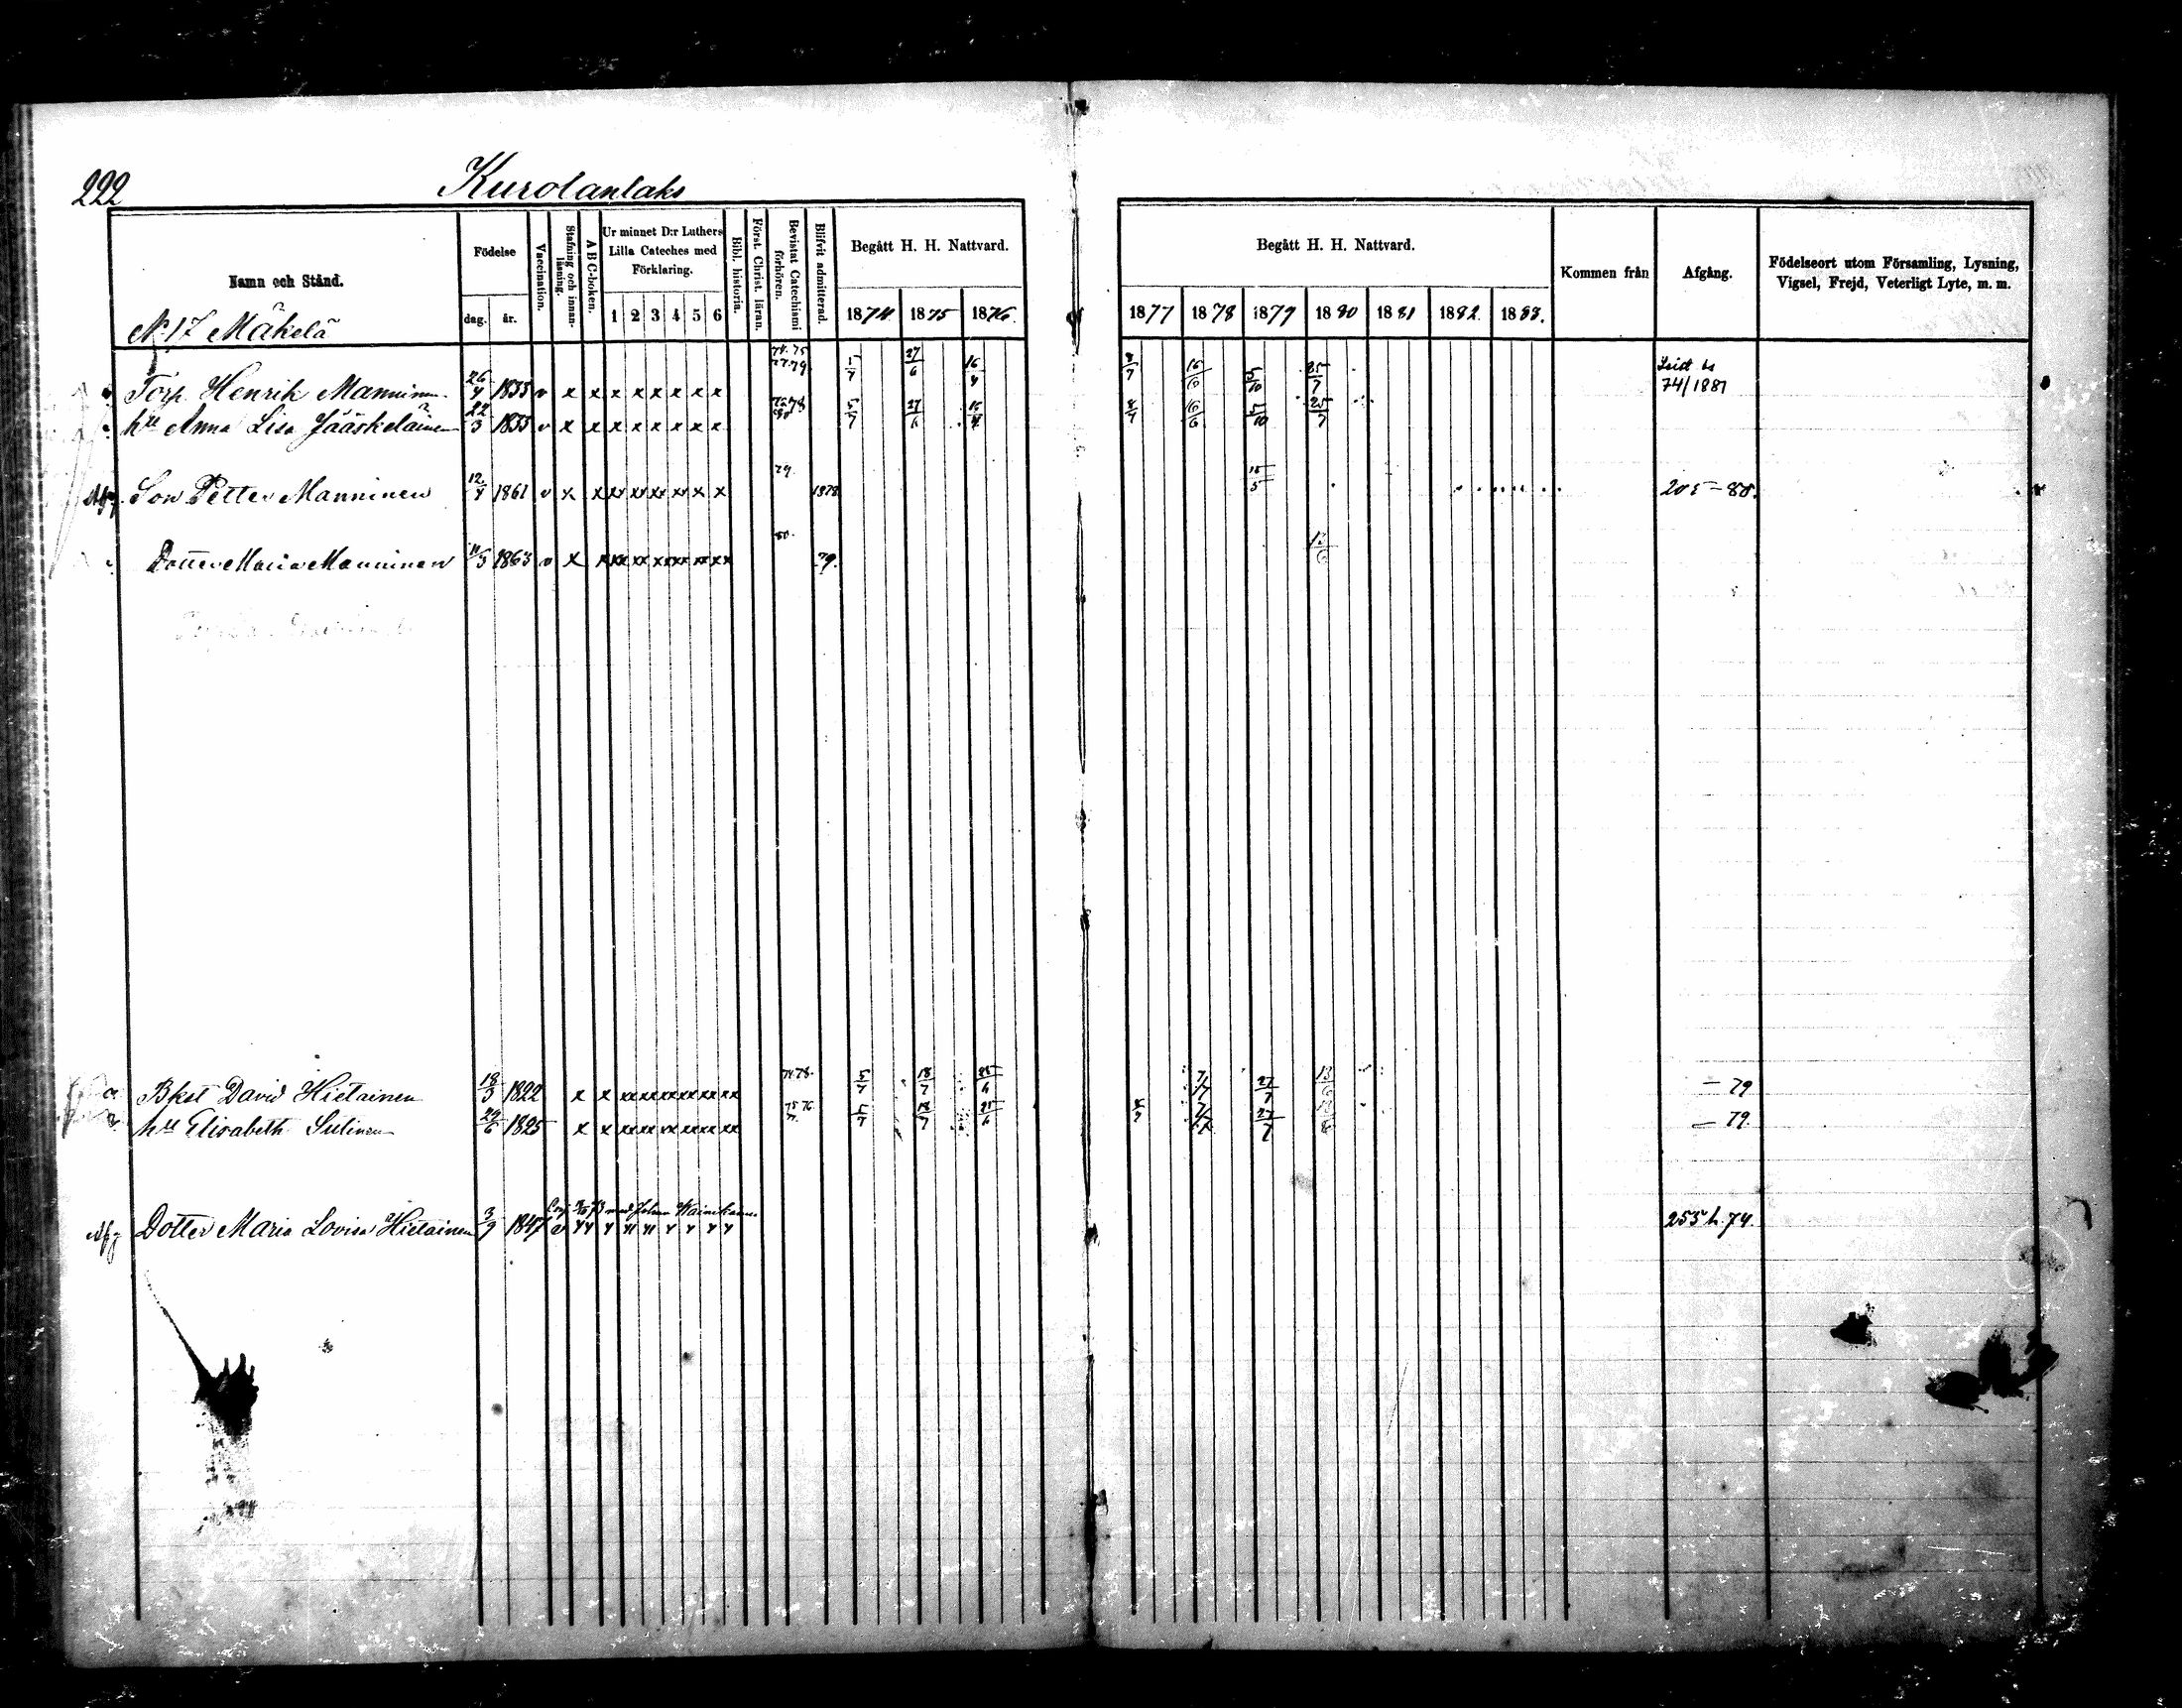 222
Kurolanlaks
Namn och Stånd.
Födelse
dag. år.
Vaccination.
Stafning och innan-läsning.
A B C-boken.
Ur minnet D:r Luthers Lilla Cateches med Förklaring.
1 2 3 4 5 6
Bibl. historia.
Först. Christ. läran.
Bevistat Catechismi förhören.
Blifvit admitterad.
Begått H. H. Nattvard.
1874 1875 1876
Begått H. H. Nattvard.
1877 1878 1879 1880 1881 1882 1883.
Kommen från
Afgång.
Födelseort utom Församling, Lysning, Vigsel, Frejd, Veterligt Lyte, m. m.
N:17 Mäkelä
Torp. Henrik Manninen 26/4 1835 v x x x x x x x x 5/7 27/6 16/4 8/7 16/6 5/10 25/7 74/1881
hu Anna Lisa Jääskeläinen 22/3 1835 v x x x x x x x x 5/7 27/6 16/4 8/7 16/6 5/10 25/7
Afg. Son Petter Manninen 12/4 1861 v x x xx xx xx xx x x 79. 1878 15/5 205-80.
Dotter Maria Manninen 11/5 1863 v x x xx xx xx xx xx xx 80. 79. 13/6
Bkst David Hietainen 18/3 1822 x x xx xx xx xx xx xx 5/7 18/7 25/6 7/7 27/7 13/6 - 79
hu Elisabeth Sutinen 24/6 1825 x x xx xx xx xx xx xx 75 76 5/7 18/7 25/6 8/7 7/7 27/7 - 79.
Afg Dotter Maria Lovisa Hietainen 3/9 1847 v 253 h. 74.